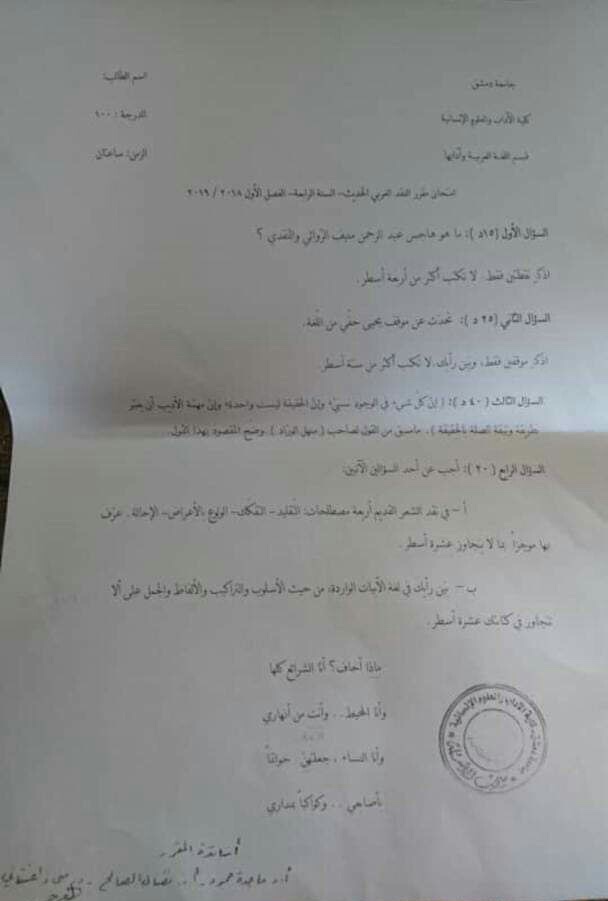 جامعة دمشق
اسم الطالب:
كلية الآداب والعلوم الإنسانية
الدرجة : ١٠٠
قسم اللغة العربية وآدابها
الزمن: ساعتان
امتحان مقرر النقد العربي الحديث– السنة الرابعة– الفصل الأول ٢٠١٨ / ٢٠١٩
السؤال الأول (١٥د ): ما هو هاجس عبد الرحمن منيف الرّوائي والنّقدي ؟
اذكر نقطتين فقط. لا تكتب أكثر من أربعة أسطر .
السؤال الثّاني (٢٥ د ): تحدث عن موقف يحيى حقّي من اللّغة.
اذكر موقفين فقط، وبين رأيك. لا تكتب أكثر من ستة أسطر
السؤال الثالث ( ٤٠ د ): ( إنّ كل شيء في الوجود نسبيّ، وإنّ الحقيقة ليست واحدة، وإنّ مهمّة الأديب أن يعبّر
بطريقة وثيقة الصلة بالحقيقة ). ماسبق من القول لصاحب ( منهل الورّاد ). وضح المقصود بهذا القول.
السؤال الرابع ( ٢٠ ): أجب عن أحد السؤالين الآتيين:
أ – في نقد الشعر القديم أربعة مصطلحات: التّقليد– التّفكّك– الولوع بالأعراض– الإحالة . عرّف
بها موجزاً بما لا يتجاوز عشرة أسطر .
ب – بيّن رأيك في لغة الأبيات الواردة، من حيث الأسلوب والتّراكيب والألفاظ والجمل على ألا
تتجاوز في كتابتك عشرة أسطر .
ماذا أخاف؟ أنا الشرائع كلها
وأنا المحيط.. وأنت من أنهاري
وأنا النساء ، جعلتهنّ خواتماً
بأصابعي . . وكواكباً بمداري
أساتذة المقرر
أ.د ماجدة حمود – أ.د. نضال الصالح –